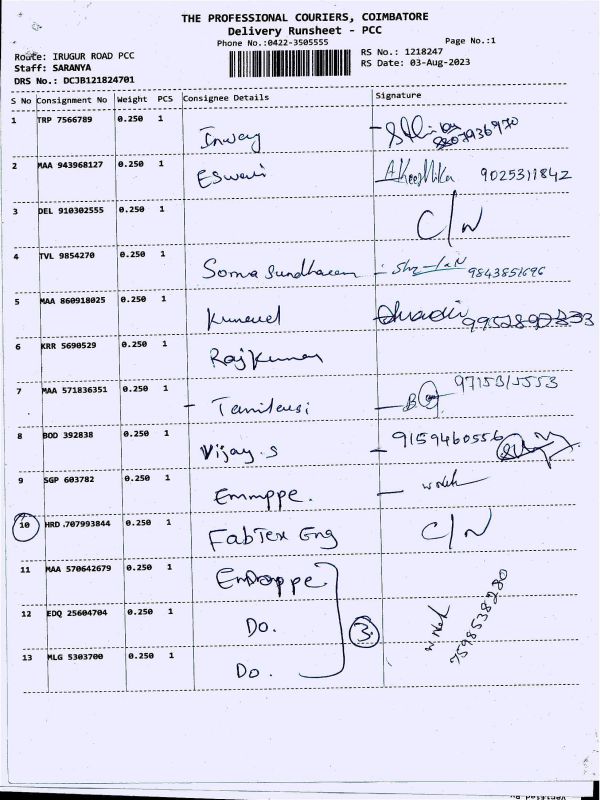 THE PROFESSIONAL COURIERS, COIMBATORE
Delivery Runsheet - PCC
Phone No.:0422-3505555 Page No.:1
Route: IRUGUR ROAD PCC RS No.: 1218247
Staff: SARANYA RS Date: 03-Aug-2023
DRS No.: DC3B121824701
S No Consignment No Weight PCS Consignee Details Signature
1 TRP 7566789 0.250 1
2 MAA 943968127 0.250 1 Eswari 9025311842
3 DEL 910302555 0.250 1 C/N
4 TVL 9854270 0.250 1 Somasundharam 9843851696
5 MAA 860918025 0.250 1
6 KRR 5690529 0.250 1 Rajkumar
7 MAA 571836351 0.250 1
8 BOD 392838 0.250 1 Vijay.S 9159460556
9 SGP 603782 0.250 1 Emmppe.
10 HRD .707993844 0.250 1 FabTex Eng C/N
11 MAA 570642679 0.250 1
12 EDQ 25604704 0.250 1 Do. 3 7598538280
13 MLG 5303700 0.250 1 Do.